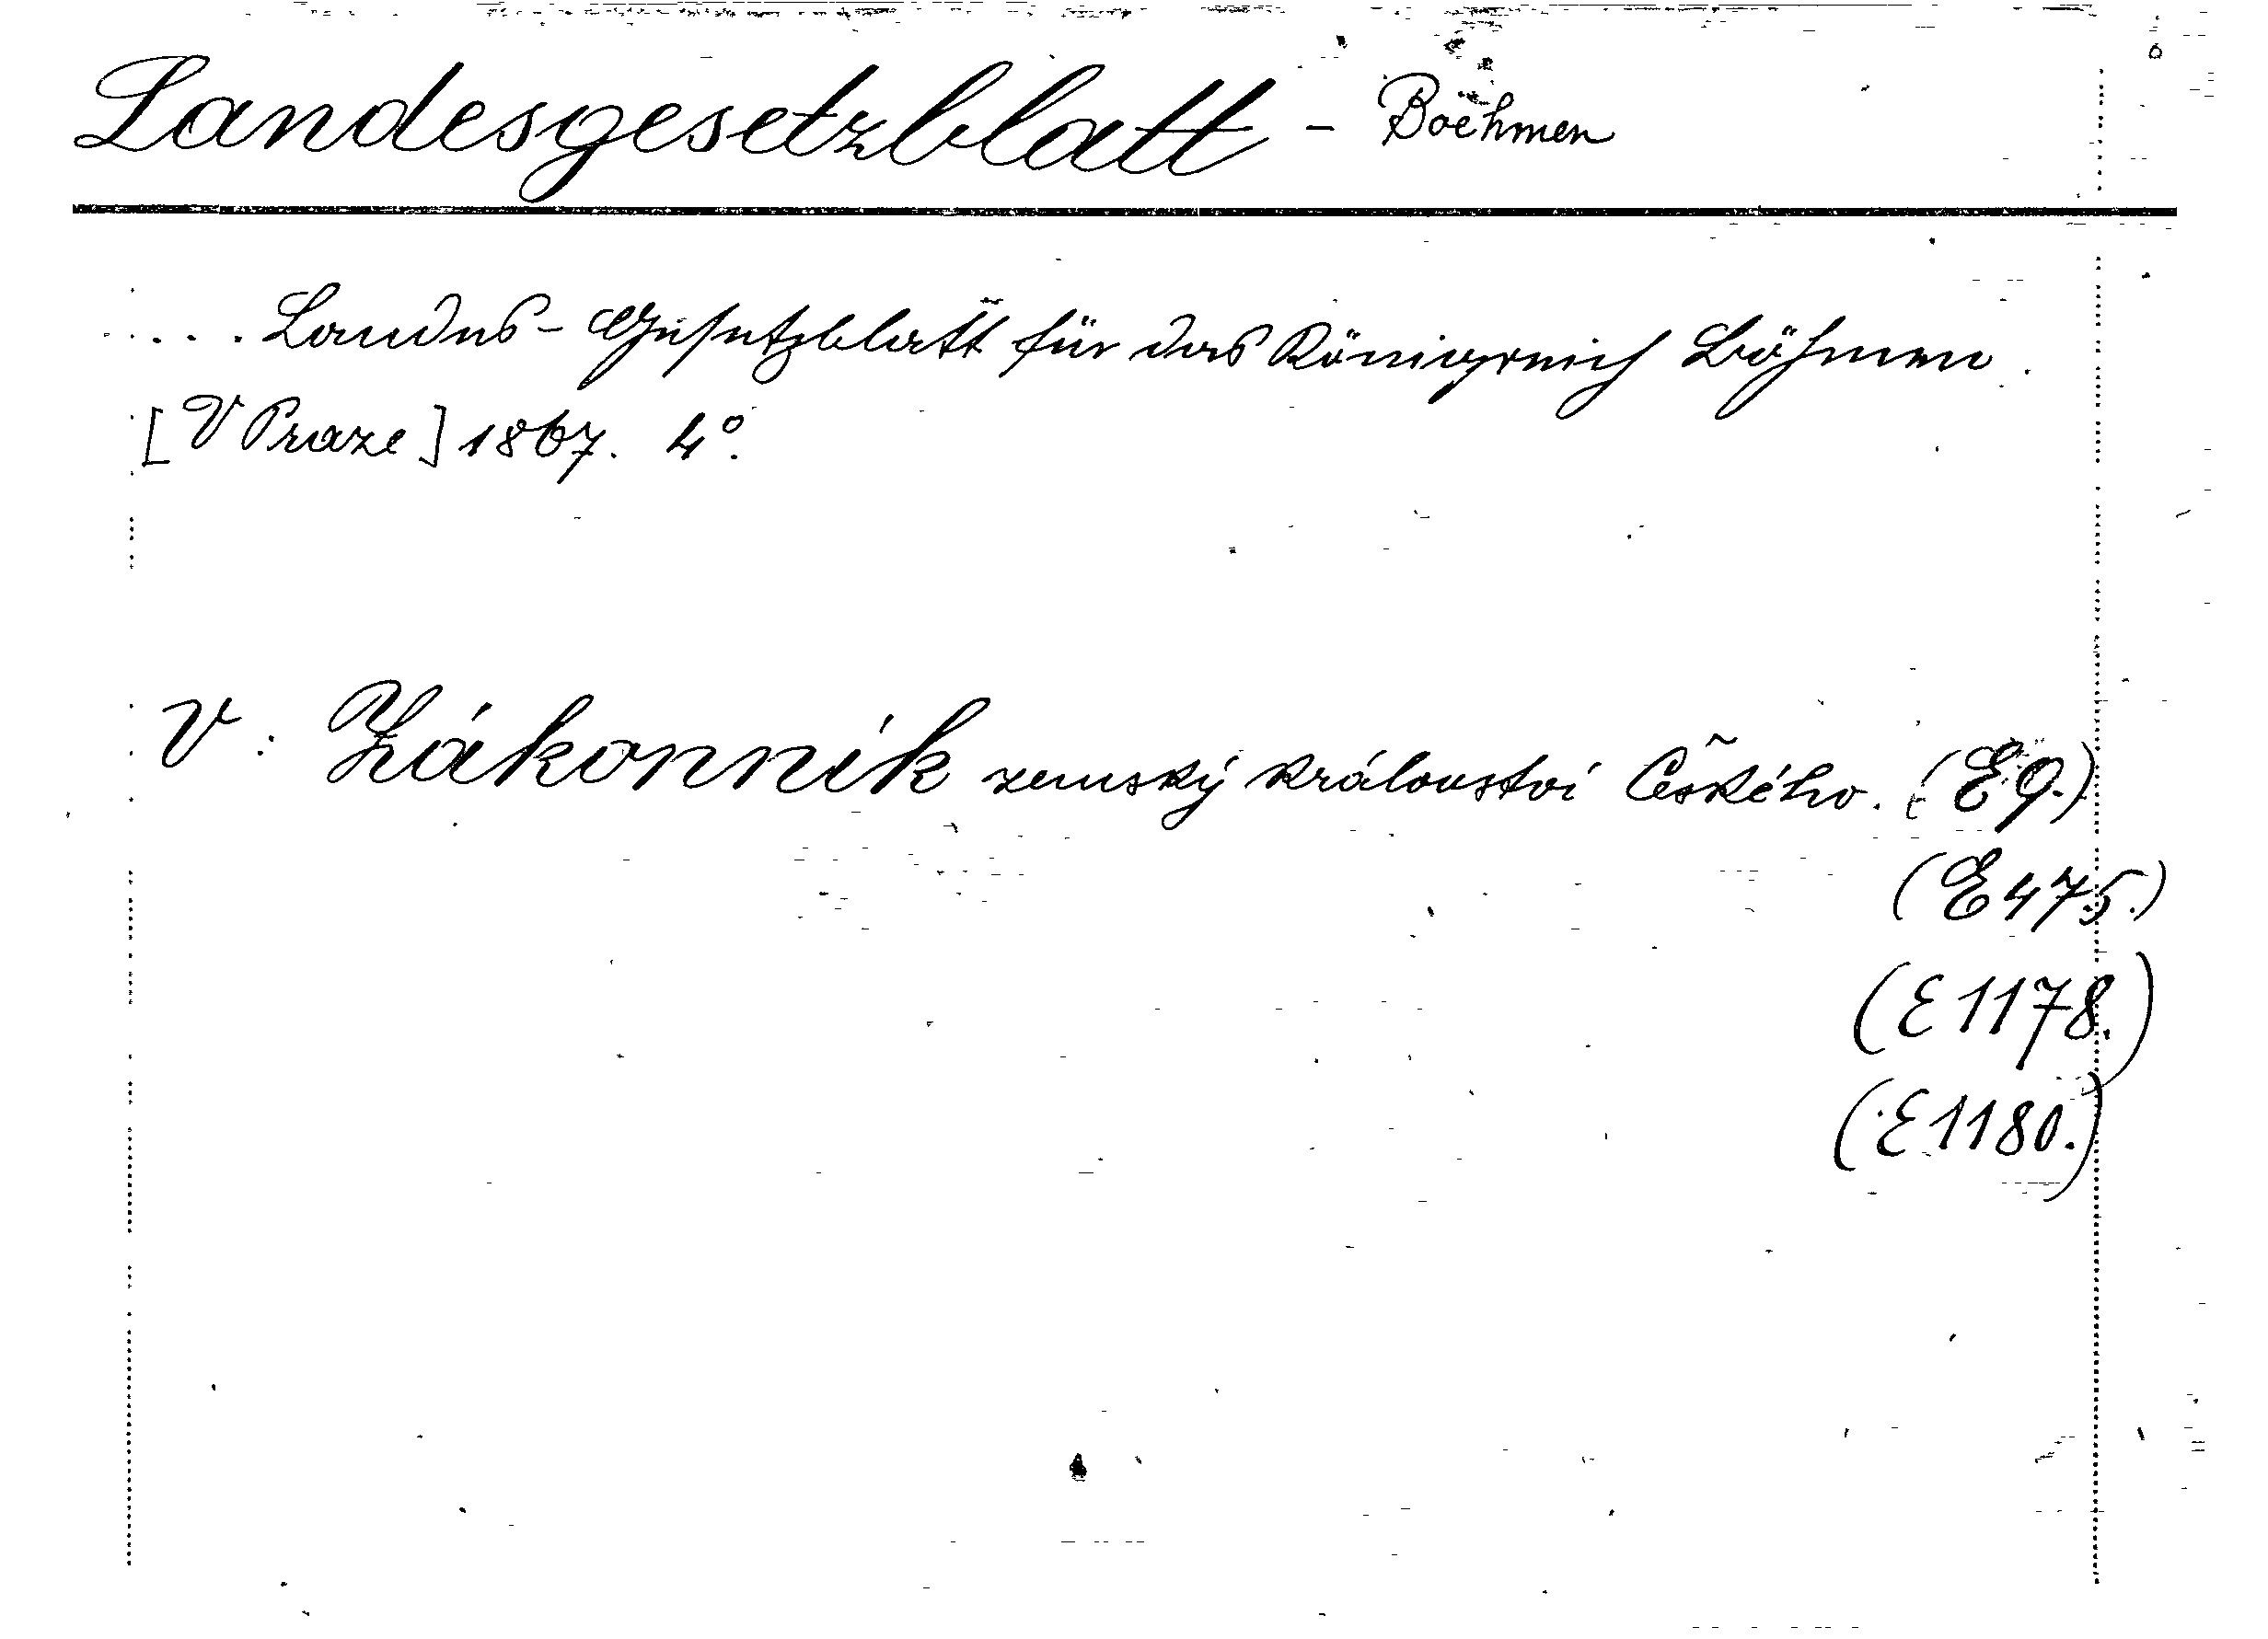 Landesgesetzblatt - Boehmen
.... Landes-Gesetzblatt für das Königreich Böhmen.
[V Praze] 1867. 4°.
V: Zákonník zemský království Českého. (E9.)
(E475.)
(E1178.)
(E1180.)